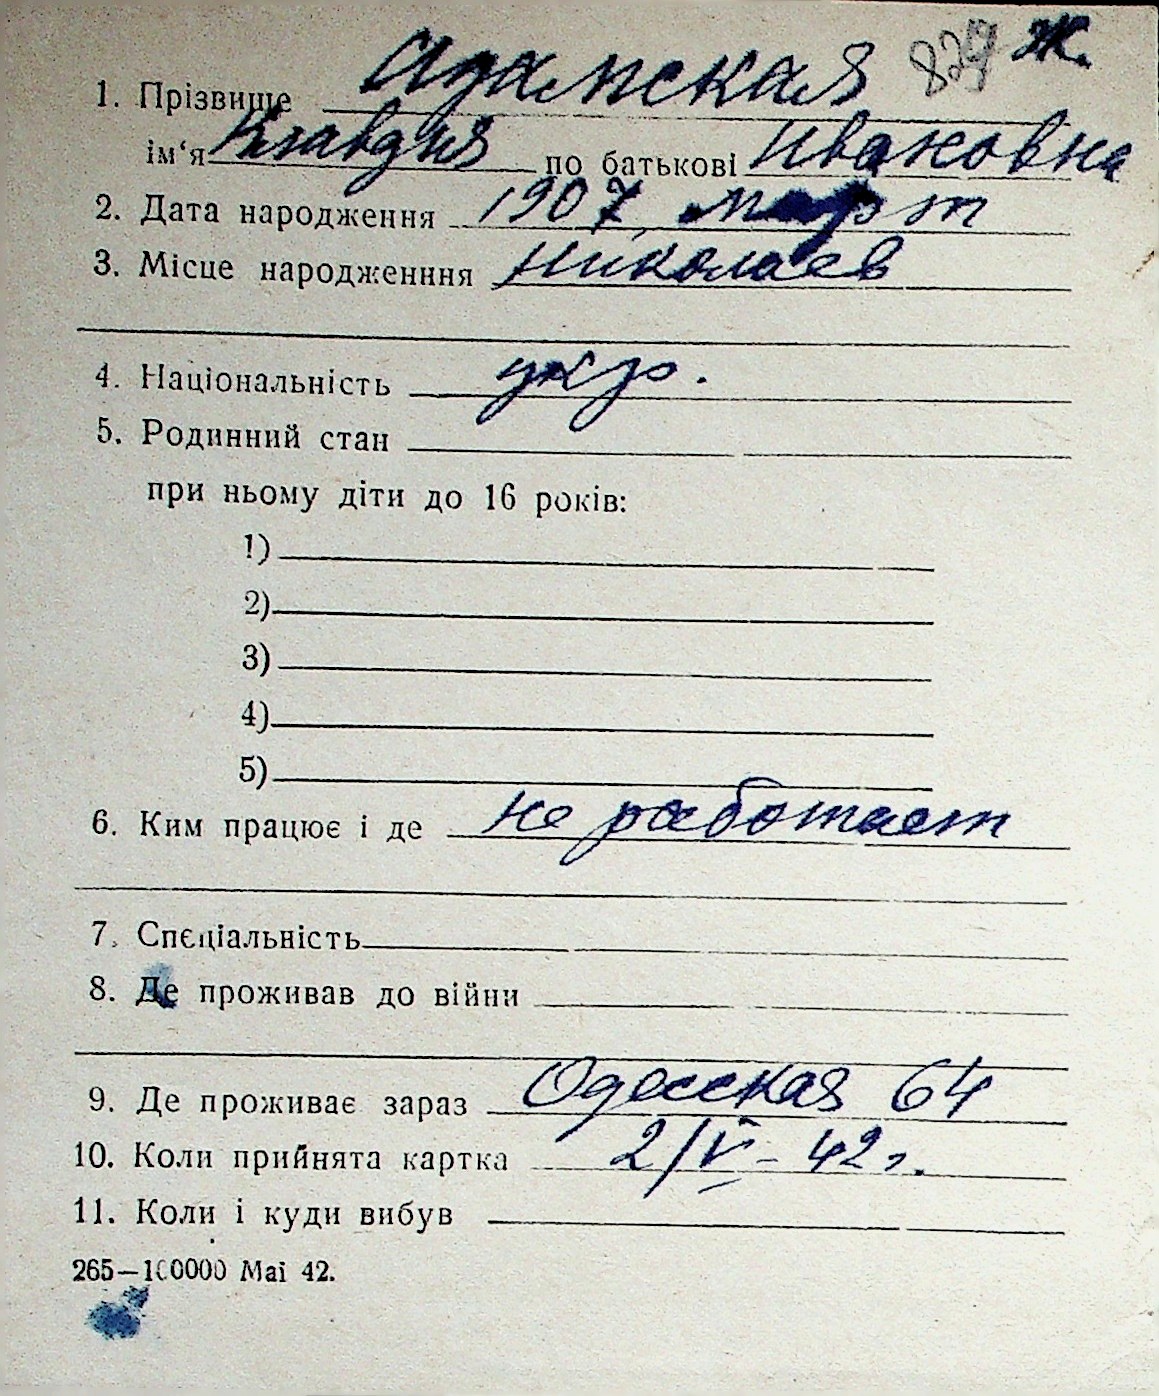 829 Ж.
1. Прізвище Адамская
ім‘я Клавдия по батькові Ивановна
2. Дата народження 1907, март
3. Місце народженння Николаев
4. Національність укр.
5. Родинний стан
при ньому діти до 16 років:
1)
2)
3)
4)
5)
6. Ким працює і де не работает
7. Спеціальність
8. Де проживав до війни
9. Де проживає зараз Одесская 64
10. Коли прийнята картка 2/V - 42 г.
11. Коли і куди вибув
265—100000 Маі 42.